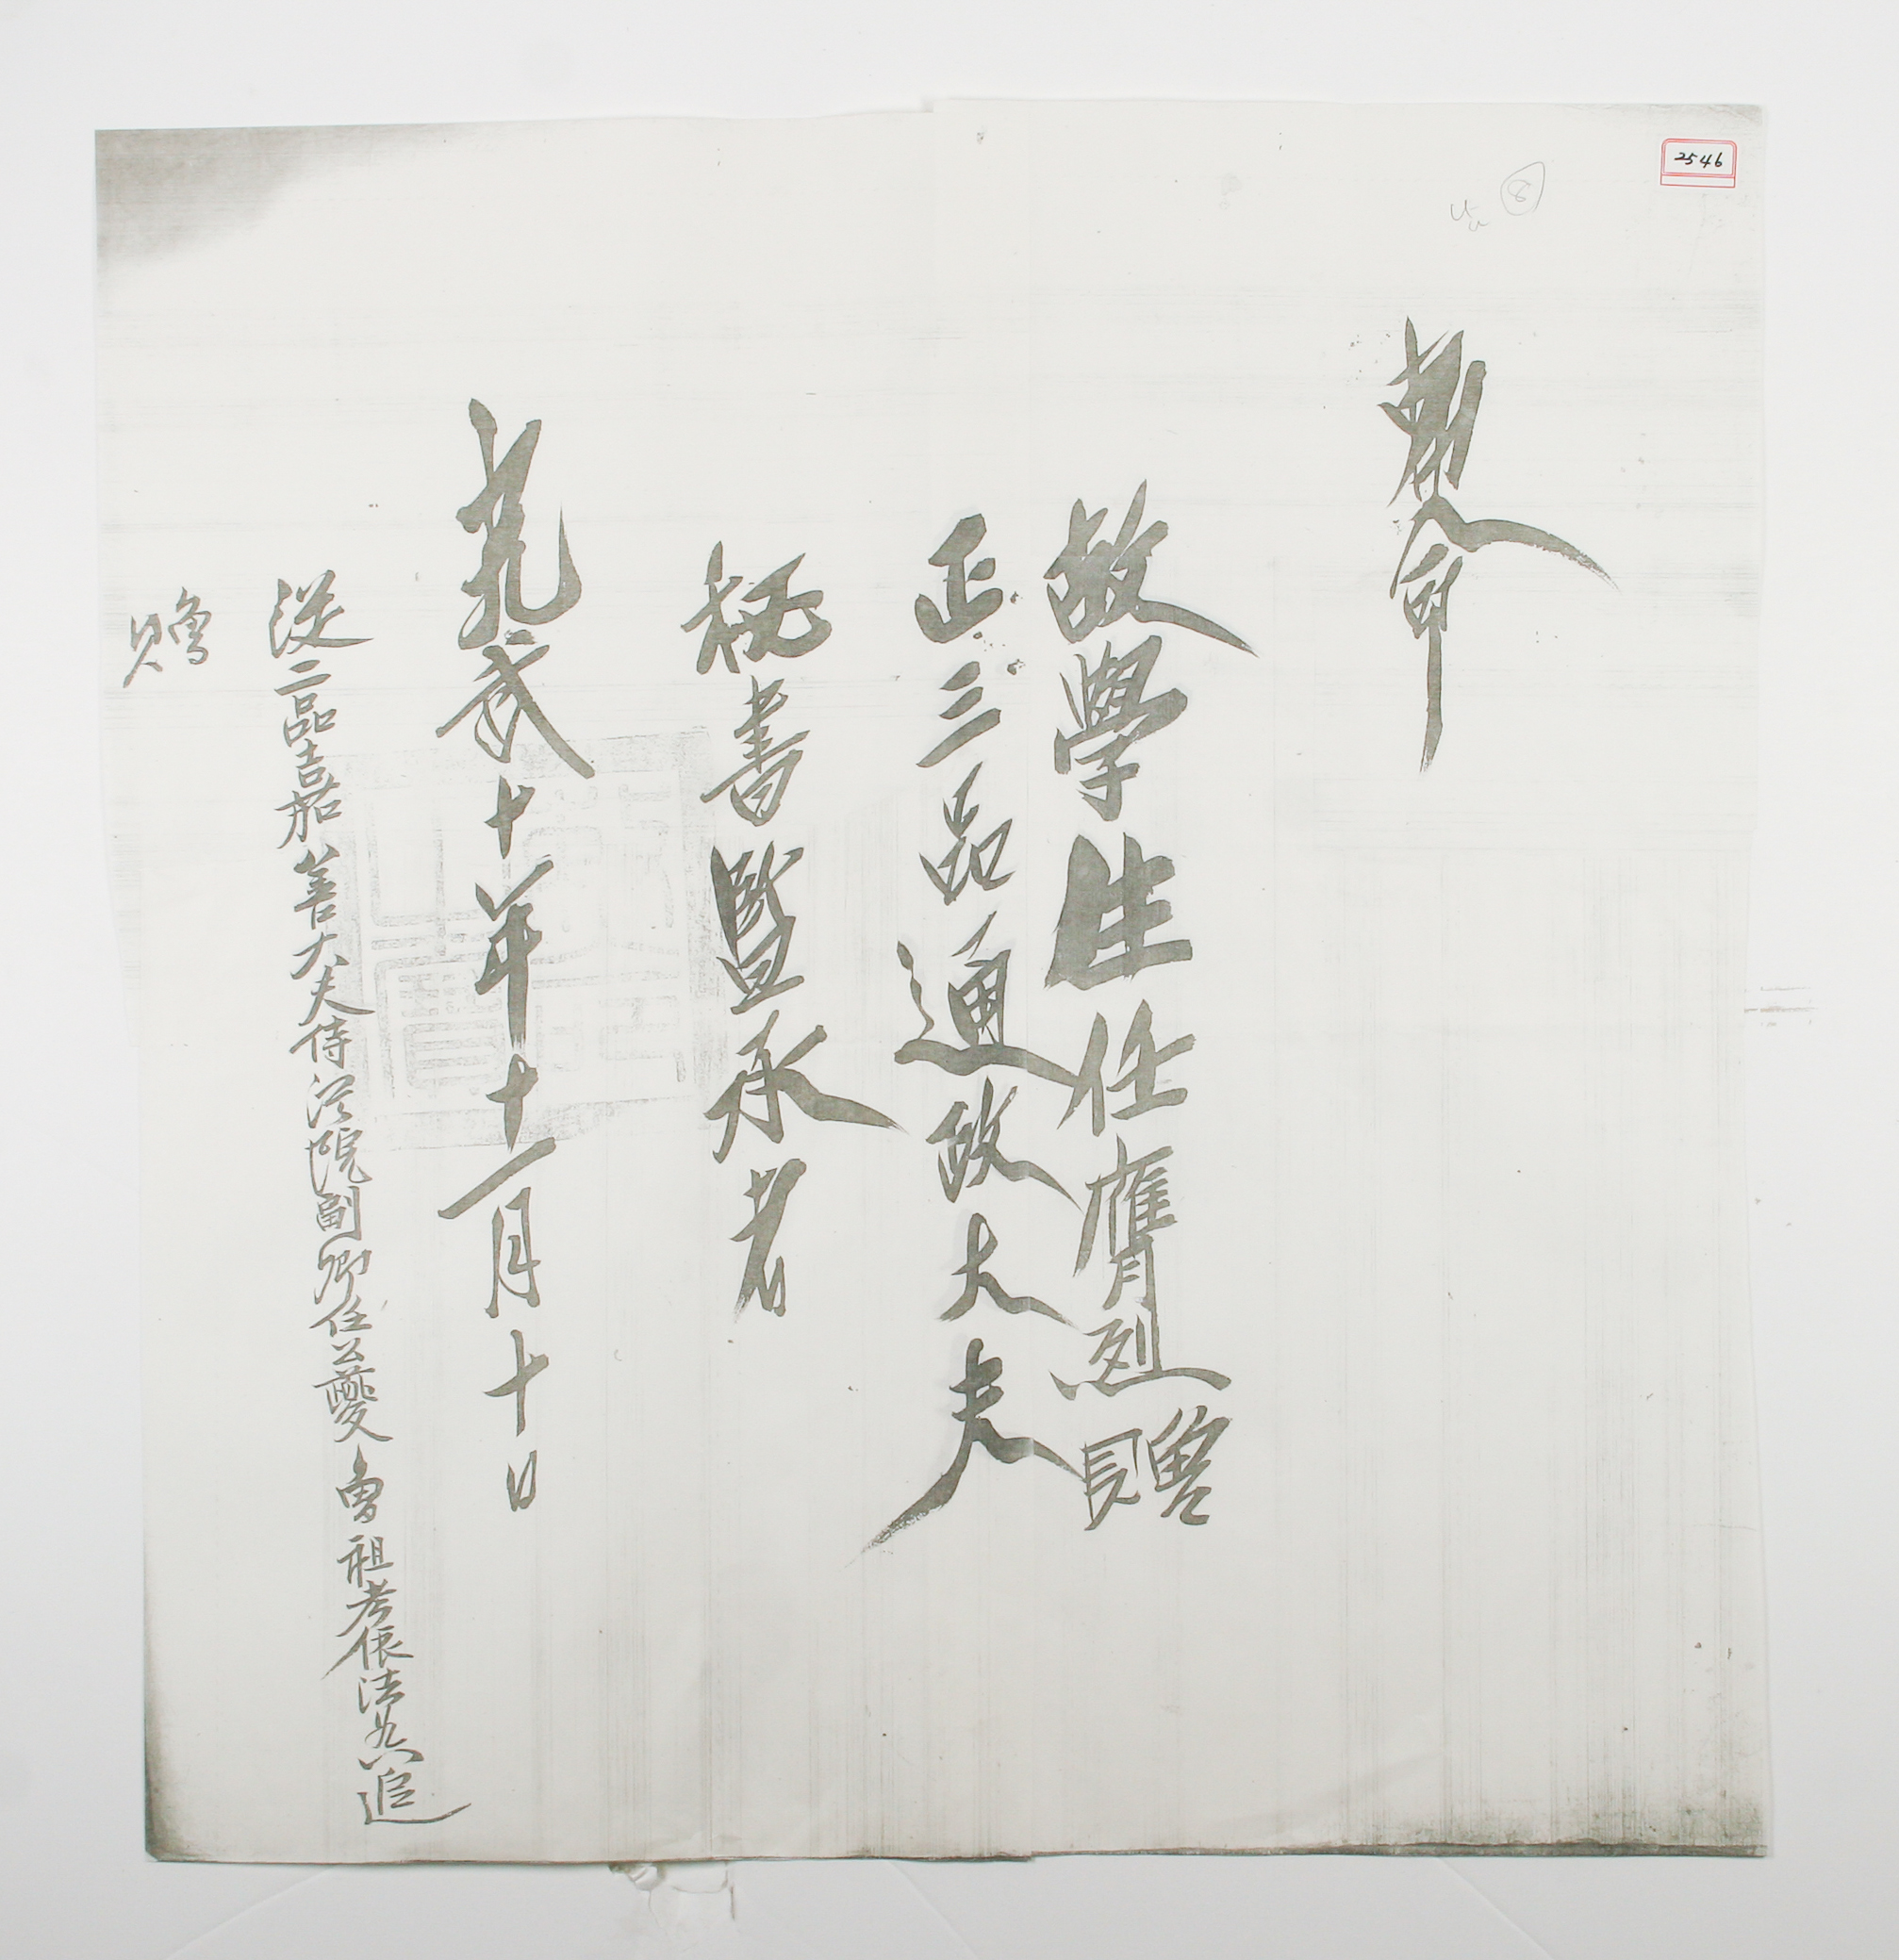 2546
8
勅命
故學生任膺烈贈
正三品通政大夫
秘書監丞者
光武十年十一月十日
從二品嘉善大夫侍從院副卿任公夔曾祖考依法典追
贈